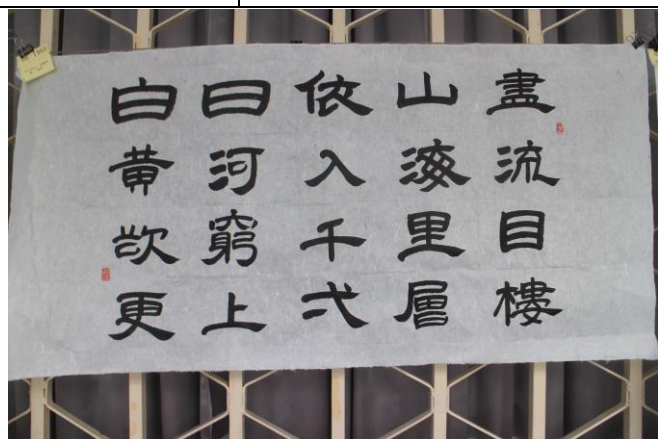 白日依山盡
黃河入海流
欲窮千里目
更上弌層樓